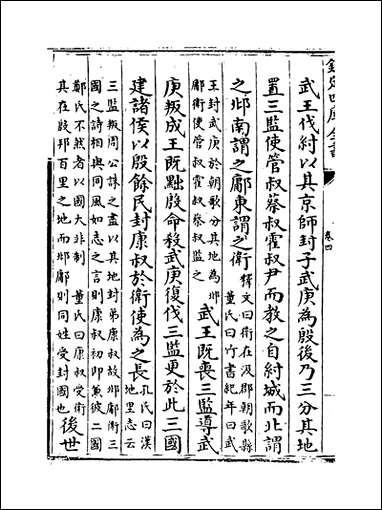 欽定四庫全書
卷四
武王伐紂以其京師封子武庚為殷後乃三分其地
置三監使管叔蔡叔霍叔尹而教之自紂城而北謂
之邶南謂之鄘東謂之衛
釋文曰衛在汲郡朝歌縣
董氏曰竹書紀年曰武
王封武庚於朝歌分其地為邶
鄘衛使管叔霍叔蔡叔監之
武王既喪三監導武
庚叛成王既黜殷命殺武庚復伐三監更於此三國
建諸侯以殷餘民封康叔於衛使為之長
孔氏曰漢
地里志云
三監叛周公誅之盡以其地封弟康叔故邶鄘衛三
國之詩相與同風如志之言則康叔初即兼彼二國
鄭氏不然者以國大非制 董氏曰康叔受衛
其在殷邦百里之地而邶鄘則同姓受封國也
後世